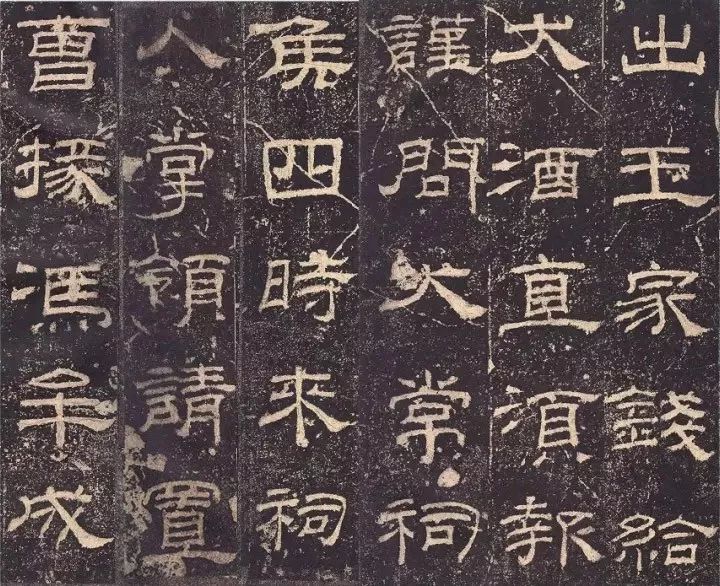 出王家錢給
大酒直須報
謹問大常祠
侯四時來祠
人掌領請置
曹掾馮牟成